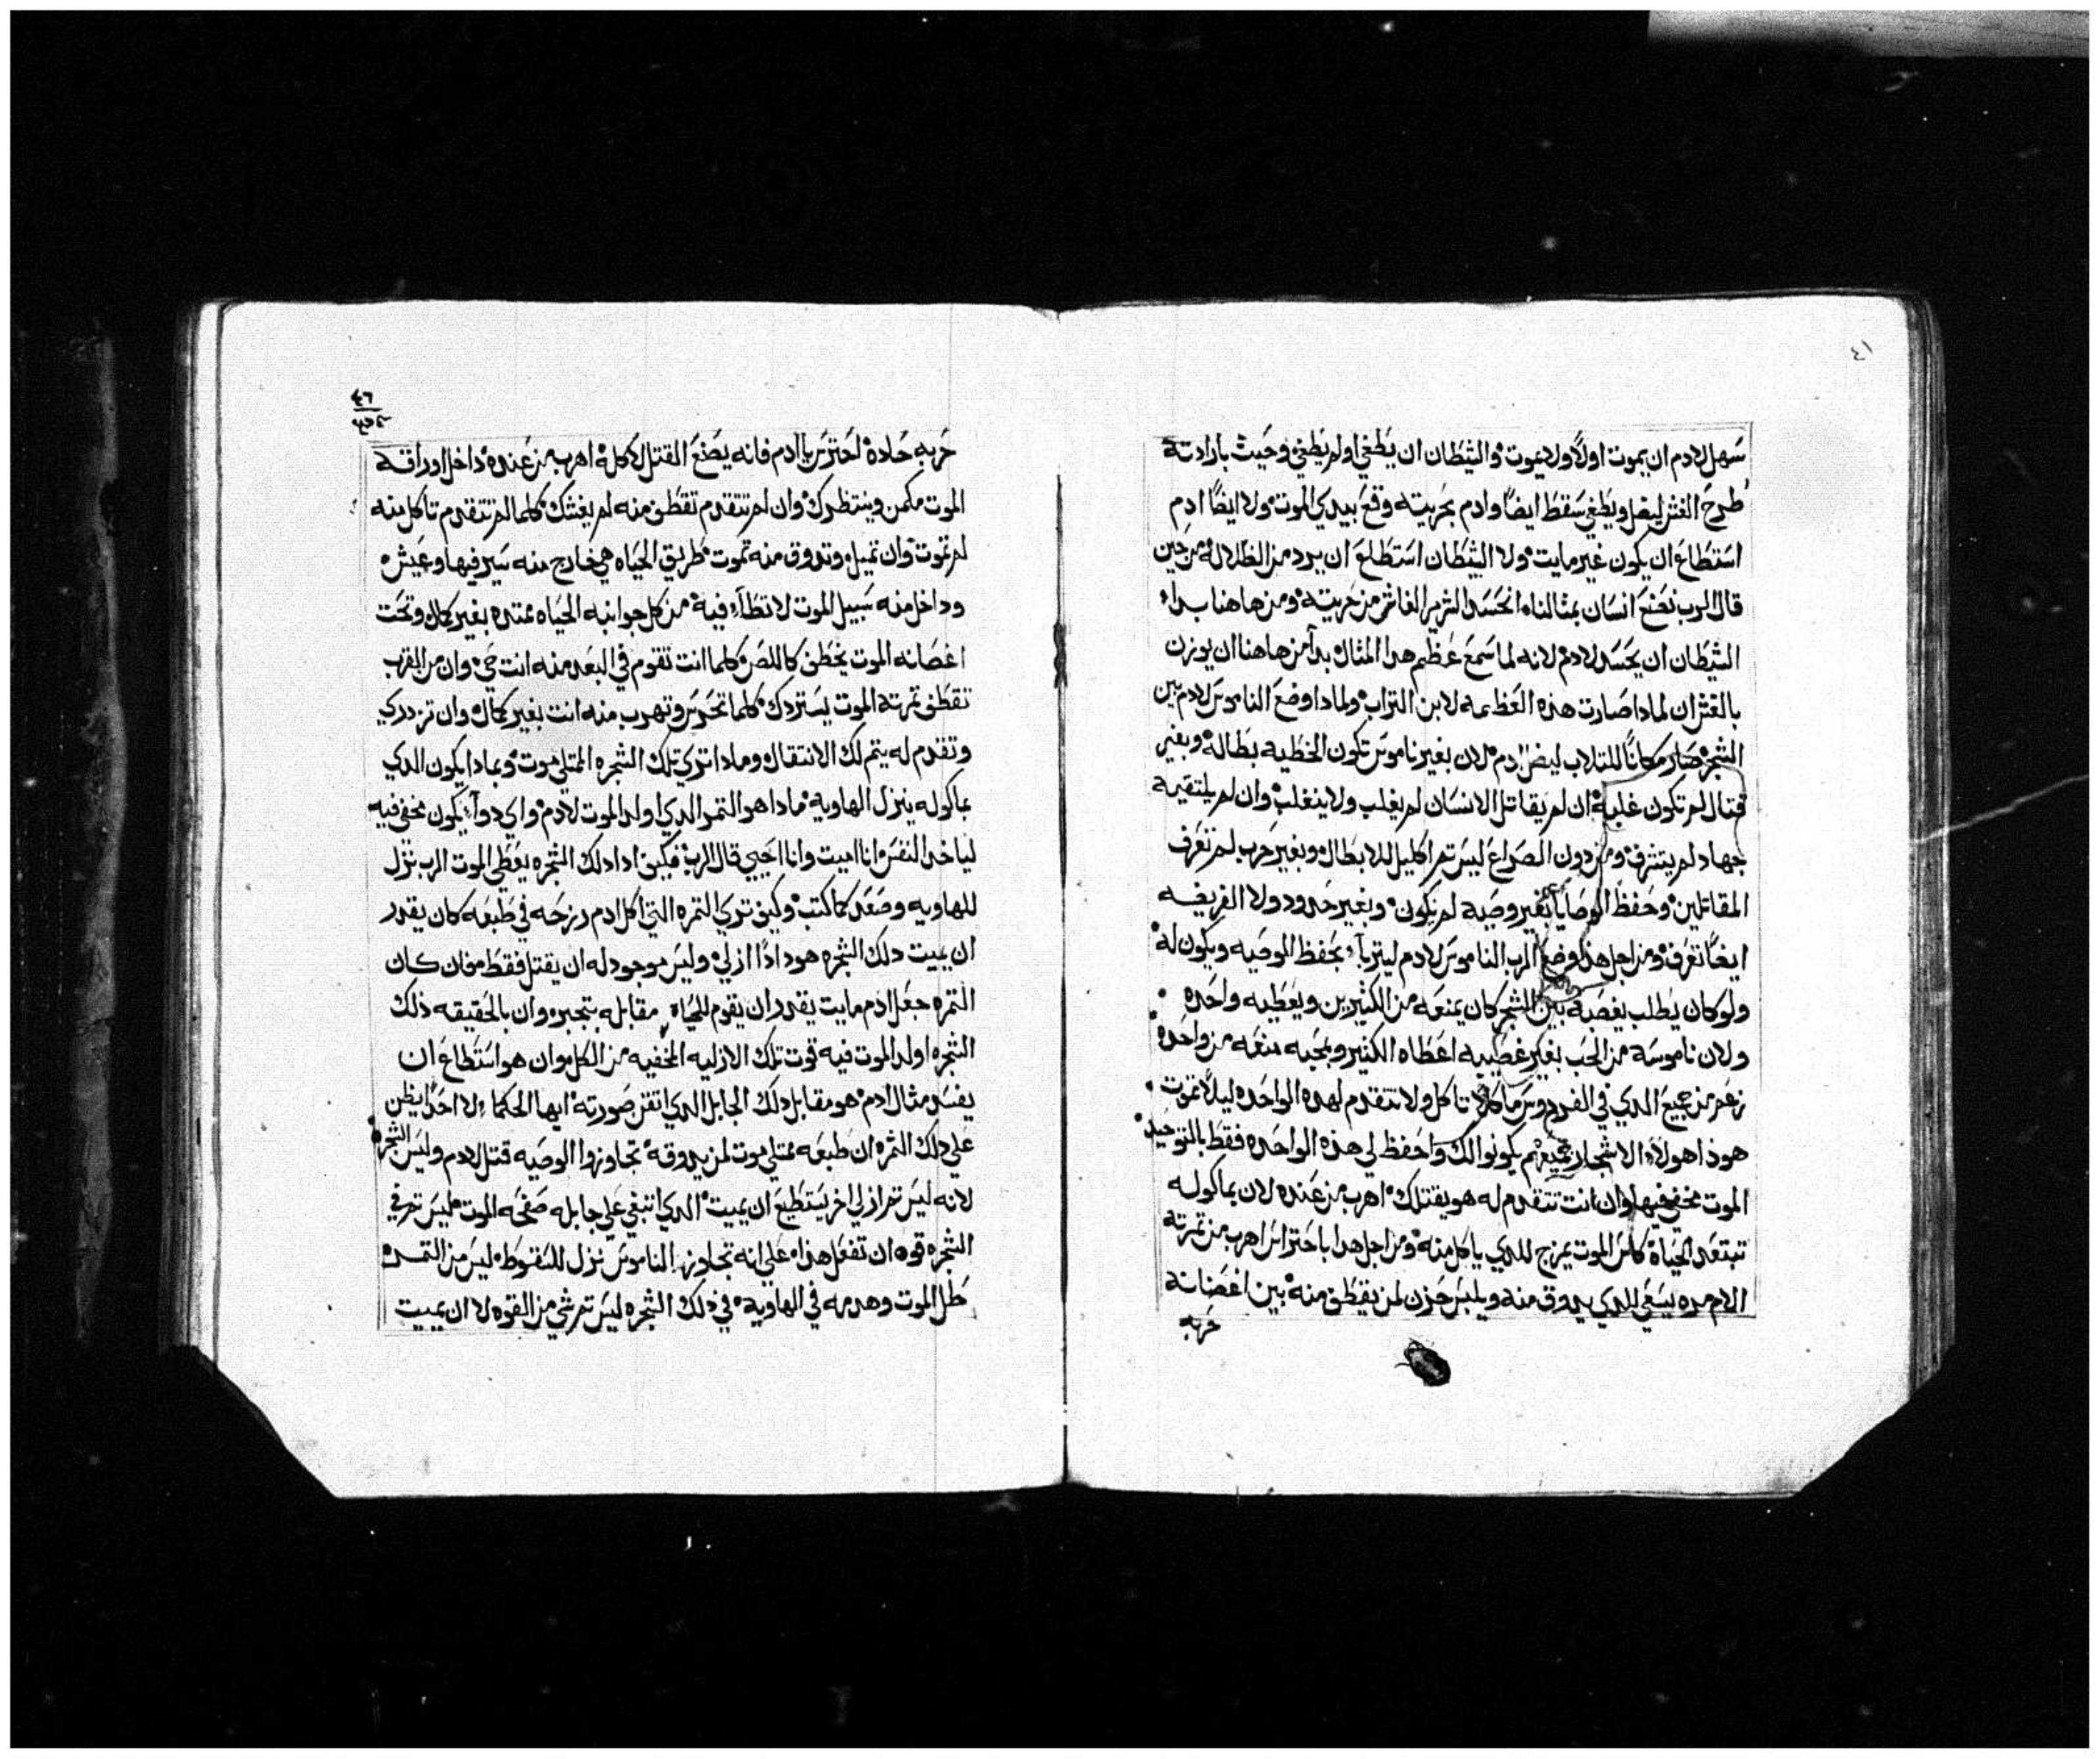 ٤١
سهل لادم ان يموت اولاً ولا يموت والشيطان ان يطغي اولم يطغي وحيث بارادته
طرح الغش ليضل ويطغي سقط ايضاً وادم بحريته وقع بيدي الموت ولا ايضاً ادم
استطاع ان يكون غير مايت ولا الشيطان استطاع ان يرد من الظلاله من حين
قال الرب نصنع انسان بمثالنا انحسد الشرير الغاش من حريته ومن هاهنا بدا
الشيطان ان يحسد لادم لانه لما سمع عظم هدا المثال بدا من هاهنا ان يوزن
بالغش ان لمادا صارت هذه العظمه لابن التراب ولمادا وضع الناموس لادم بين
الشجر صار مكاناً للتلاب ليضل ادم لان بغير ناموس تكون الخطيه بطاله وبغير
قتال لم تكون غلبه ان لم يقاتل الانسان لم يغلب ولا ينغلب وان لم يلتقيه
جهاد لم يتشرف ومن دون الصراع ليس تم اكليل للابطال وبغير حرب لم تعرف
المقاتلين وحفظ الوصايا بغير وصيه لم يكون وبغير حدود ولا الفريضه
ايضاً تعرف ومن اجل هذا وضع الرب الناموس لادم ليتربا بحفظ الوصيه ويكون له
ولو كان يطلب يغصبه بين الشجر كان يمنعه من الكثيرين ويعطيه واحده
ولان ناموسه من الحب بغير غصيبه اعطاه الكثير وبمحبه منعه من واحده
زعم من جميع الدي في الفردوس ماكلاً تاكل ولا تتقدم لهده الواحده ليلا تموت
هوذا هولاء الاشجار جميعهم يكونوا لك واحفظ لي هذه الواحده فقط بالتوحيد
الموت مخفي فيها وان انت تتقدم له هو يقتلك اهرب من عنده لان بماكوله
تبتعد الحياة كاس الموت يمزج للدي ياكل منه ومن اجل هدا باحتراس اهرب من ثمرته
الام مره يسقي للدي يدوق منه ويلبس حزن لمن يقطف منه بين اغصانه
حربه
٤٦
حربه حاده احترس يا ادم فانه يصنع القتل لاكله اهرب من عنده داخل اوراقه
الموت مكمن وينتظرك وان لم تتقدم تقطف منه لم يغشك كلما لم تتقدم تاكل منه
لم تموت وان تميل وتدوق منه تموت طريق الحياه هي خارج منه سير فيها وعيش
وداخل منه سبيل الموت لا تطاء فيه من كل جوانبه الحياه ممتده بغير كمال وتحت
اغصانه الموت يخطف كاللص كلما انت تقوم في البعد منه انت حي وان من القرب
تقطف ثمرته الموت يستردك كلما تحرس وتهرب منه انت بغير كمال وان تزدري
وتقدم له يتم لك الانتقال ومادا تري تلك الشجره الممتلي موت وبمادا يكون الدي
بماكوله ينزل الهاويه مادا هو الثمر الدي اولد الموت لادم واي دواء يكون مخفي فيه
لياخد النفس انا اميت وانا احيي قال الرب فكيف ادا دلك الشجره يعطي الموت الرب نزل
للهاويه وصعد كما كتب وكيف تري الثمره التي اكل ادم درجه في طبعه كان يقدر
ان يميت دلك الشجره هودا اذاً ازلي وليس موجود له ان يقتل فقط فان كان
الثمره جعل ادم مايت يقدر ان يقوم للحياه مقابله بتجبره وان بالحقيقه ذلك
الشجره اولد الموت فيه قوت تلك الازليه المخفيه من الكل وان هو استطاع ان
يفسد مثال ادم هو مقابل دلك الجابل الدي اتقن صورته ايها الحكما لا احداً يظن
علي دلك الثمره ان طبعه ممتلي موت لمن يدوقه تجاوزوا الوصيه قتل لادم وليس الشجره
لانه ليس تم ازلي اخر يستطيع ان يميت الدي اتبغي علي جابله صفحه الموت فليس تم في
الشجره قوه ان تفعل هذا علي انه تجاوز الناموس نزل للسقوط ليس من الثمره
طل الموت وهدمه في الهاويه في ذلك الشجره ليس تم شي من القوه لا ان يميت